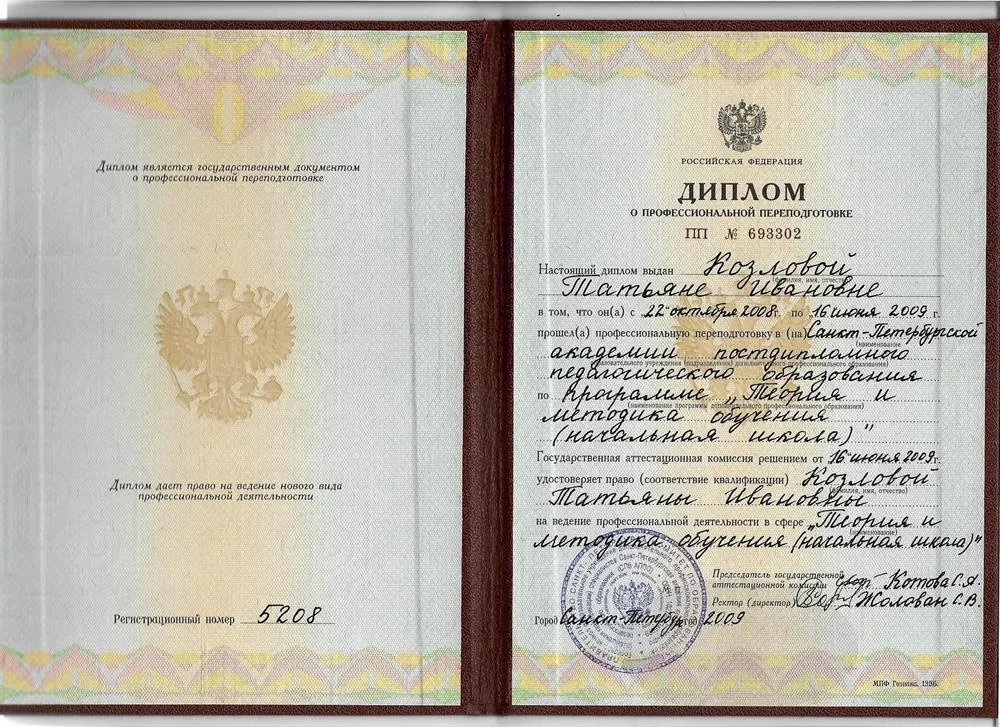 Диплом является государственным документом
о профессиональной переподготовке
Диплом дает право на ведение нового вида
профессиональной деятельности
Регистрационный номер 5208
РОССИЙСКАЯ ФЕДЕРАЦИЯ
ДИПЛОМ
О ПРОФЕССИОНАЛЬНОЙ ПЕРЕПОДГОТОВКЕ
ПП № 693302
Настоящий диплом выдан Козловой
(фамилия, имя, отчество)
Татьяне Ивановне
в том, что он(а) с „22“ октября 2008г. по 16 июня 2009г.
прошел(а) профессиональную переподготовку в (на) Санкт-Петербургской
(наименование
академии постдипломного
образовательного учреждения (подразделения) дополнительного профессионального образования)
педагогического образования
по программе „Теория и
(наименование программы дополнительного профессионального образования)
методика обучения
(начальная школа)"
Государственная аттестационная комиссия решением от „16“ июня 2009г.
удостоверяет право (соответствие квалификации) Козловой
(фамилия, имя, отчество)
Татьяны Ивановны
на ведение профессиональной деятельности в сфере „Теория и
(наименование)
методика обучения (начальная школа)"
Председатель государственной
аттестационной комиссии Котова С.А.
Ректор (директор) Жолован С.В.
Город Санкт-Петербург год 2009
(СПб АППО)
МПФ Гознака. 1996.